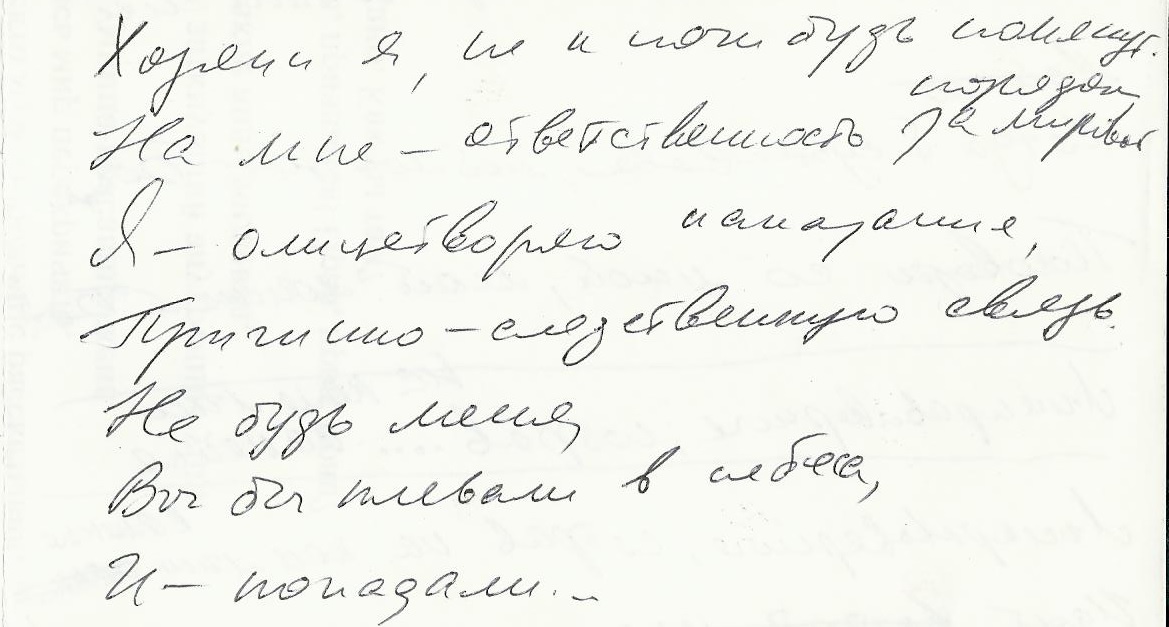 Хозяин я, не к ночи будь помянут.
На мне – ответственность за мировой порядок,
Я – олицетворяю наказание,
Причинно-следственную связь.
Не будь меня,
Вы бы плевали в небеса,
И – попадали...